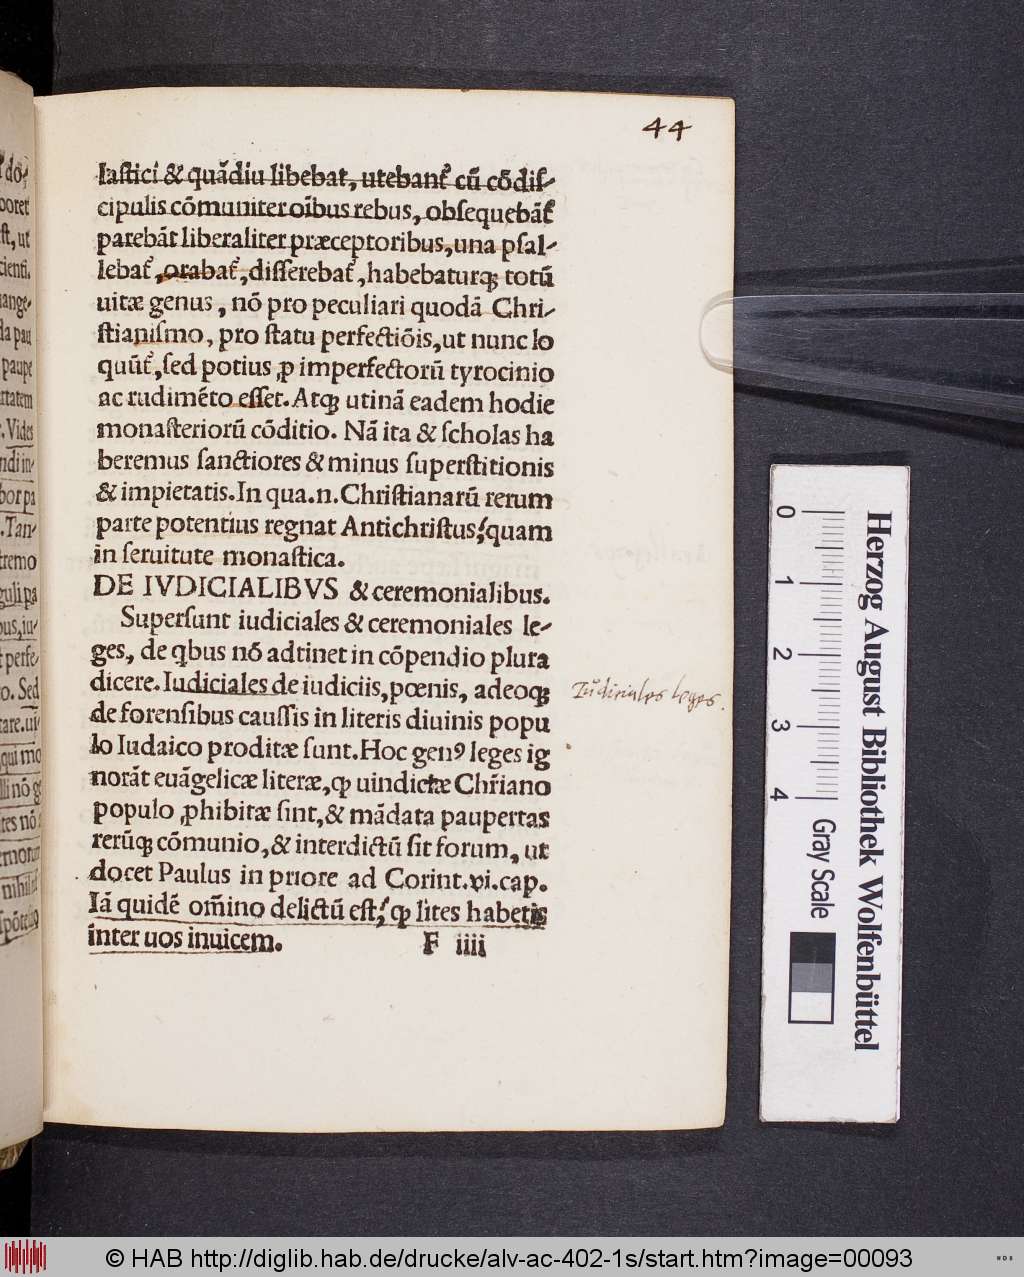 44
lastici & quādiu libebat, utebanť cū cōdis-
cipulis cōmuniter oībus rebus, obsequebāť
parebāt liberaliter præceptoribus, una psal-
lebať, orabať, disserebať, habebaturq; totū
uitæ genus, nō pro peculiari quodā Chri-
stianismo, pro statu perfectiōis, ut nunc lo
quūť, sed potius ꝓ imperfectorū tyrocinio
ac rudimēto esset. Atq; utinā eadem hodie
monasteriorū cōditio. Nā ita & scholas ha
beremus sanctiores & minus superstitionis
& impietatis. In qua.n. Christianarū rerum
parte potentius regnat Antichristus? quam
in seruitute monastica.
DE IVDICIALIBVS & ceremonialibus.
Supersunt iudiciales & ceremoniales le-
ges, de qbus nō adtinet in cōpendio plura
dicere. Iudiciales de iudiciis, pœnis, adeoq;
de forensibus caussis in literis diuinis popu
lo Iudaico proditæ sunt. Hoc genꝰ leges ig
norāt euāgelicæ literæ, ꝙ uindictæ Chr̃iano
populo ꝓhibitæ sint, & mādata paupertas
rerūq; cōmunio, & interdictū sit forum, ut
docet Paulus in priore ad Corint.vi.cap.
Iā quidē om̃ino delictū est? ꝙ lites habetis
inter uos inuicem.
F iiii
Iudiciales leges.
0 1 2 3 4
Gray Scale
Herzog August Bibliothek Wolfenbüttel
© HAB http://diglib.hab.de/drucke/alv-ac-402-1s/start.htm?image=00093